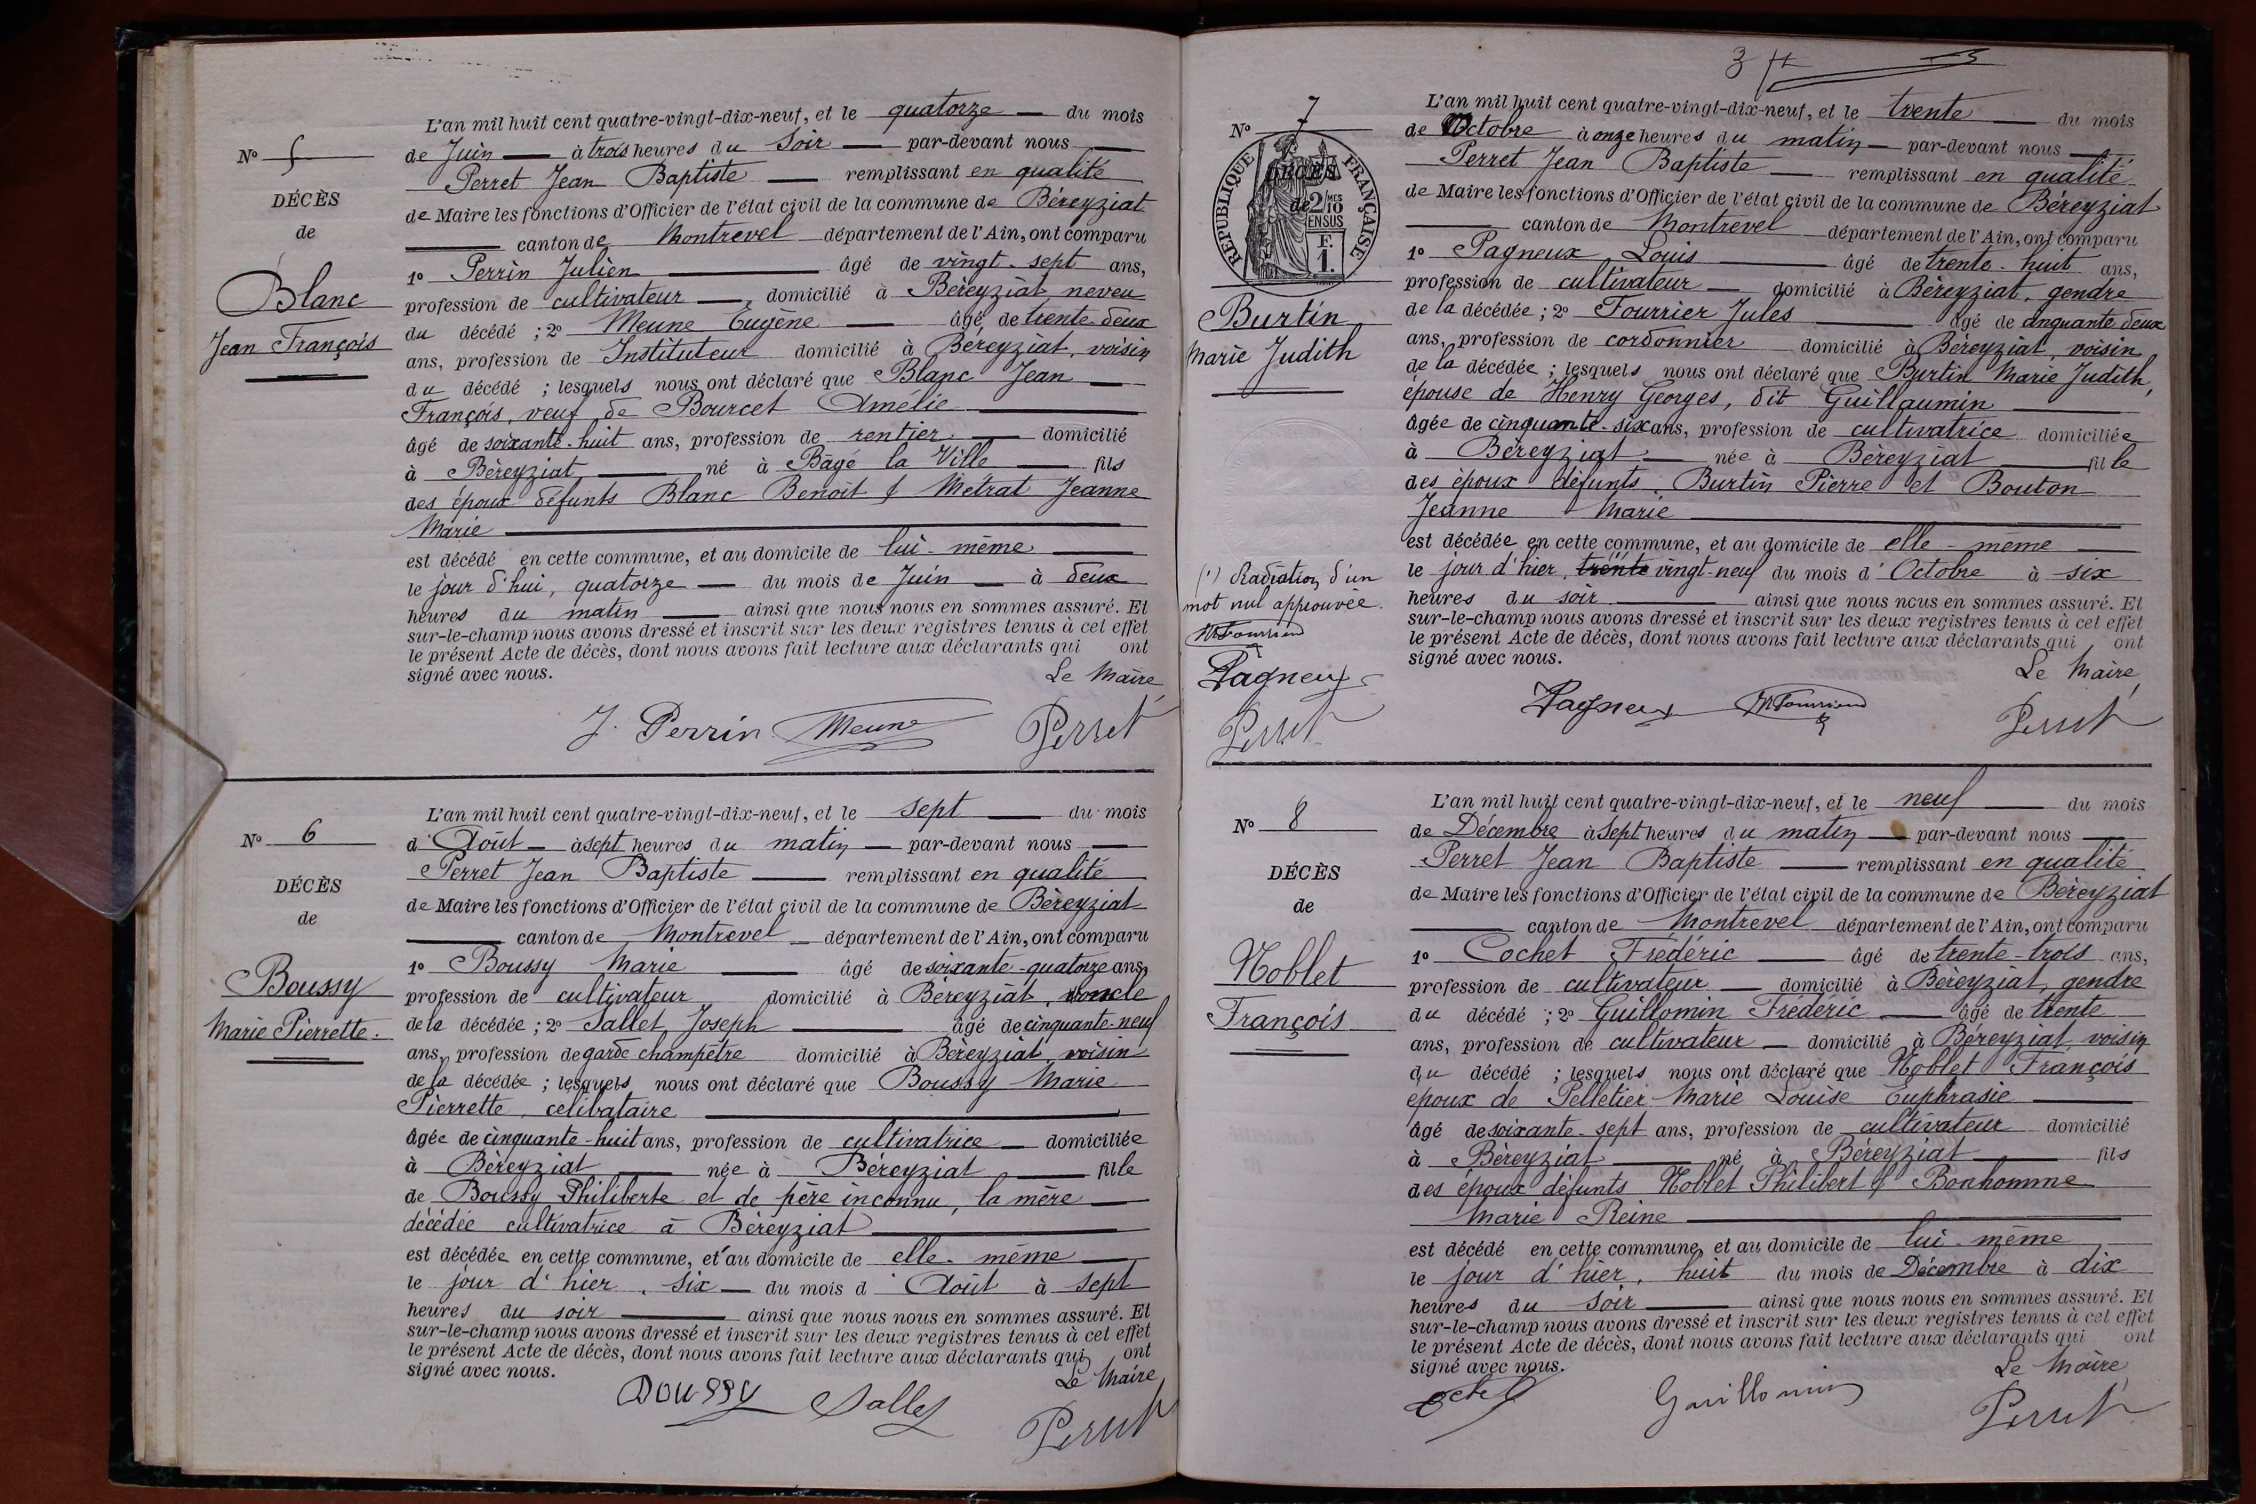 L'an mil huit cent quatre-vingt-dix-neuf, et le quatorze — du mois
de Juin — à trois heures du soir — par-devant nous
Perret Jean Baptiste — remplissant en qualité
de Maire les fonctions d'Officier de l'état civil de la commune de Béreyziat
canton de Montrevel département de l'Ain, ont comparu
1o Perrin Julien âgé de vingt-sept ans,
profession de cultivateur —, domicilié à Béreyziat neveu
du décédé ; 2o Meune Eugène — âgé de trente deux
ans, profession de Instituteur domicilié à Béreyziat, voisin
du décédé ; lesquels nous ont déclaré que Blanc Jean —
François, veuf de Bourcet Amélie
âgé de soixante-huit ans, profession de rentier — domicilié
à Béreyziat — né à Bâgé la Ville — fils
des époux défunts Blanc Benoît & Metrat Jeanne
Marie
est décédé en cette commune, et au domicile de lui-même
le jour d'hui, quatorze — du mois de Juin — à deux
heures du matin — ainsi que nous nous en sommes assuré. Et
sur-le-champ nous avons dressé et inscrit sur les deux registres tenus à cet effet
le présent Acte de décès, dont nous avons fait lecture aux déclarants qui ont
signé avec nous.
Le Maire,
J. Perrin Meune Perret
No 5
DÉCÈS
de
Blanc
Jean François
L'an mil huit cent quatre-vingt-dix-neuf, et le sept — du mois
d'Août — à sept heures du matin — par-devant nous —
Perret Jean Baptiste — remplissant en qualité
de Maire les fonctions d'Officier de l'état civil de la commune de Béreyziat
canton de Montrevel — département de l'Ain, ont comparu
1o Boussy Marie — âgé de soixante-quatorze ans,
profession de cultivateur domicilié à Béreyziat, oncle
de la décédée ; 2o Sallet Joseph — âgé de cinquante-neuf
ans, profession de garde champêtre domicilié à Béreyziat, voisin
de la décédée ; lesquels nous ont déclaré que Boussy Marie
Pierrette, célibataire
âgée de cinquante-huit ans, profession de cultivatrice — domiciliée
à Béreyziat — née à Béreyziat — fille
de Boussy Philiberte et de père inconnu, la mère
décédée cultivatrice à Béreyziat
est décédée en cette commune, et au domicile de elle-même
le jour d'hier, six — du mois d'Août à sept
heures du soir — ainsi que nous nous en sommes assuré. Et
sur-le-champ nous avons dressé et inscrit sur les deux registres tenus à cet effet
le présent Acte de décès, dont nous avons fait lecture aux déclarants qui ont
signé avec nous.
Le Maire,
Boussy Sallet Perret
No 6
DÉCÈS
de
Boussy
Marie Pierrette.
3
L'an mil huit cent quatre-vingt-dix-neuf, et le trente — du mois
de Octobre à onze heures du matin — par-devant nous —
Perret Jean Baptiste — remplissant en qualité
de Maire les fonctions d'Officier de l'état civil de la commune de Béreyziat
canton de Montrevel département de l'Ain, ont comparu
1o Pagneux Louis — âgé de trente-huit ans,
profession de cultivateur — domicilié à Béreyziat, gendre
de la décédée ; 2o Fourrier Jules — âgé de cinquante deux
ans, profession de cordonnier domicilié à Béreyziat, voisin
de la décédée ; lesquels nous ont déclaré que Burtin Marie Judith,
épouse de Henry Georges, dit Guillaumin
âgée de cinquante-six ans, profession de cultivatrice domiciliée
à Béreyziat — née à Béreyziat — fille
des époux défunts Burtin Pierre et Bouton
Jeanne Marie
est décédée en cette commune, et au domicile de elle-même
le jour d'hier, trente vingt-neuf du mois d'Octobre à six
heures du soir — ainsi que nous nous en sommes assuré. Et
sur-le-champ nous avons dressé et inscrit sur les deux registres tenus à cet effet
le présent Acte de décès, dont nous avons fait lecture aux déclarants qui ont
signé avec nous.
Le Maire,
Pagneux Fourrier Perret
No 7
RÉPUBLIQUE FRANÇAISE
DÉCÈS
de
2/10MES
EN SUS
F.
1.
Burtin
Marie Judith
(1) Radiation d'un
mot nul approuvée.
Fourrier
Pagneux
Perret
L'an mil huit cent quatre-vingt-dix-neuf, et le neuf — du mois
de Décembre à sept heures du matin — par-devant nous —
Perret Jean Baptiste — remplissant en qualité
de Maire les fonctions d'Officier de l'état civil de la commune de Béreyziat
canton de Montrevel département de l'Ain, ont comparu
1o Cochet Frédéric — âgé de trente-trois ans,
profession de cultivateur — domicilié à Béreyziat, gendre
du décédé ; 2o Guillomin Frédéric — âgé de trente
ans, profession de cultivateur — domicilié à Béreyziat, voisin
du décédé ; lesquels nous ont déclaré que Noblet François
époux de Pelletier Marie Louise Euphrasie
âgé de soixante-sept ans, profession de cultivateur domicilié
à Béreyziat — né à Béreyziat — fils
des époux défunts Noblet Philibert & Bonhomme
Marie Reine
est décédé en cette commune, et au domicile de lui-même
le jour d'hier, huit du mois de Décembre à dix
heures du soir — ainsi que nous nous en sommes assuré. Et
sur-le-champ nous avons dressé et inscrit sur les deux registres tenus à cet effet
le présent Acte de décès, dont nous avons fait lecture aux déclarants qui ont
signé avec nous.
Le Maire,
Guillomin Perret
No 8
DÉCÈS
de
Noblet
François